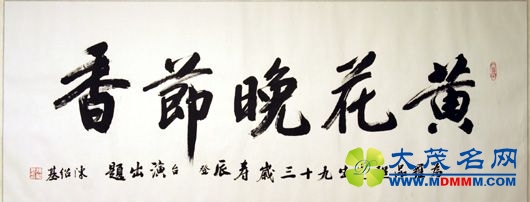 黄花晚節香
九十三歲寿辰登台演出題 陳紹基
大茂名网
WWW.MDMMM.COM